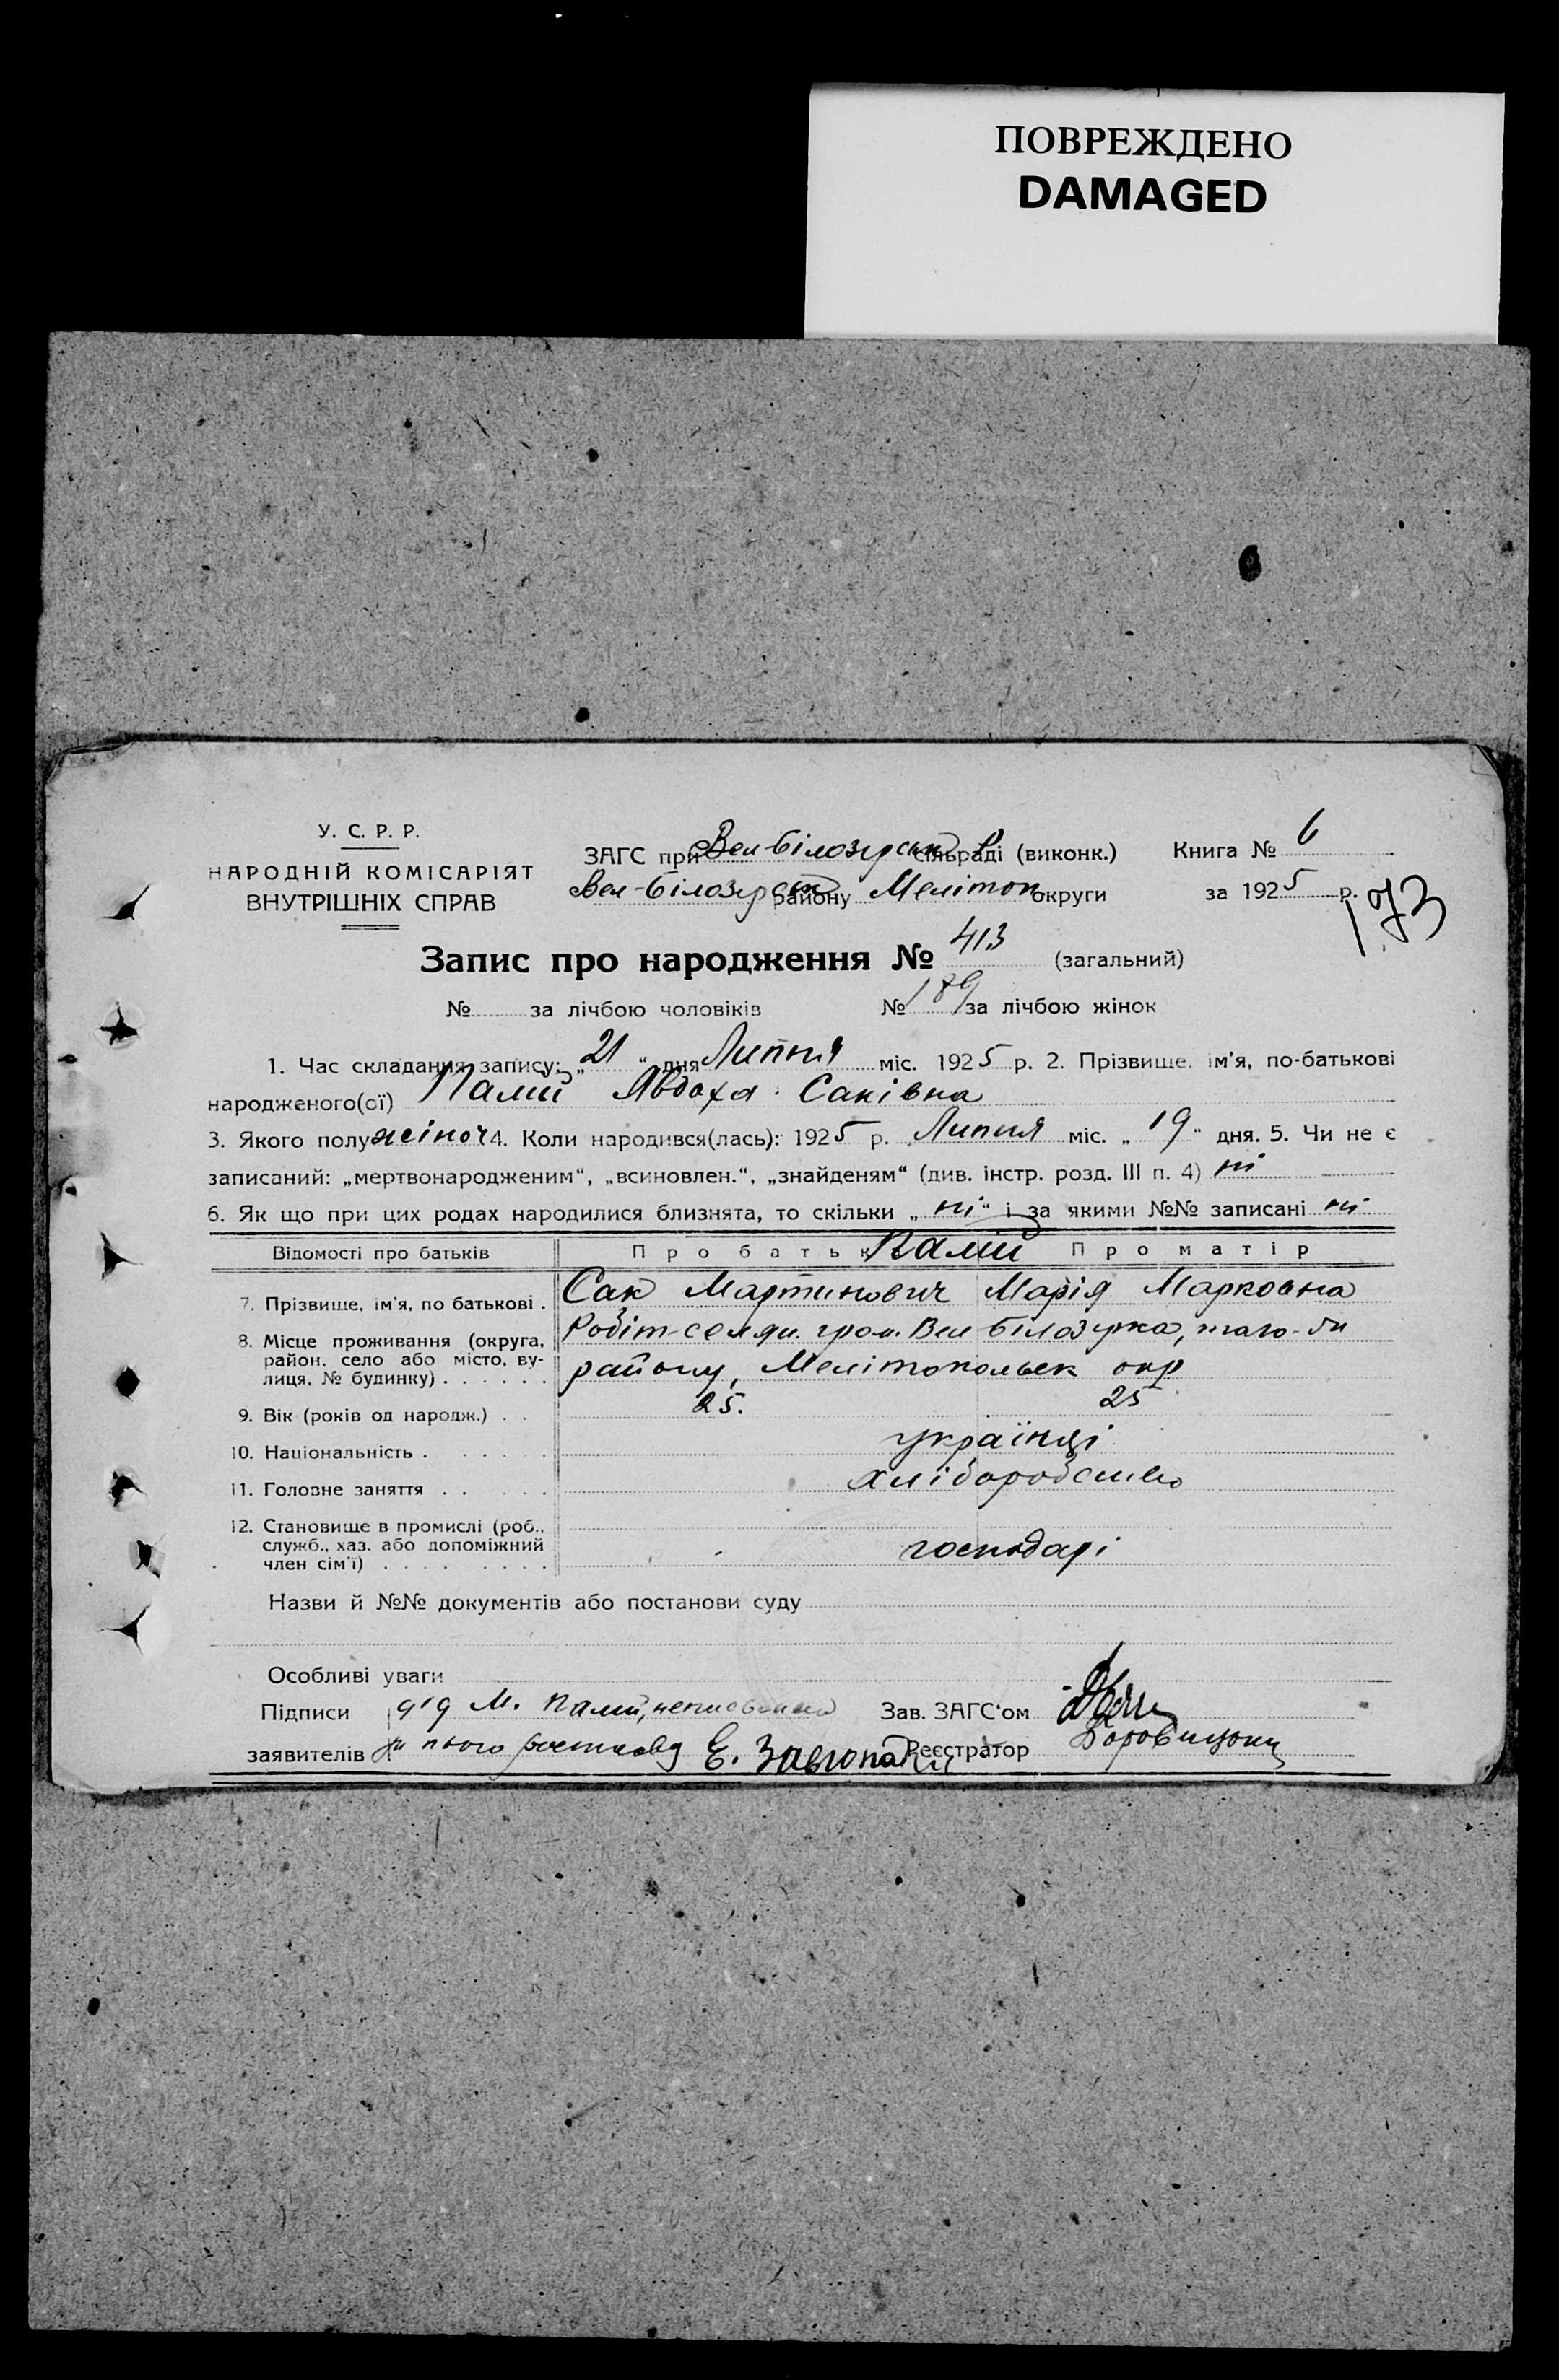 ПОВРЕЖДЕНО
DAMAGED
У. С. Р. Р.
НАРОДНІЙ КОМІСАРІЯТ
ВНУТРІШНІХ СПРАВ
ЗАГС при Вел-Білозірськ сільраді (виконк.)
Книга № 6
Вел-Білозірськ району Мелітоп округи
за 1925 р.
173
Запис про народження № 413 (загальний)
№ за лічбою чоловіків № 189 за лічбою жінок
1. Час складання запису: „21“ дня Липня міс. 1925 р. 2. Прізвище, ім'я, по-батькові
народженого(ої) Палій Явдоха Саківна
3. Якого полу жіноч 4. Коли народився(лась): 1925 р. Липня міс. „19“ дня. 5. Чи не є
записаний: „мертвонародженим“, „всиновлен.“, „знайденям“ (див. інстр. розд. III п. 4) ні
6. Як що при цих родах народилися близнята, то скільки „ні“ і за якими №№ записані ні
Відомості про батьків Про батьк Палій Про матір
7. Прізвище, ім'я, по батькові . Сак Мартинович Марія Марковна
8. Місце проживання (округа, район, село або місто, вулиця, № будинку) . . . . . . Робіт-селян. гром. Вел Білозірка, того-ж
району, Мелітопольск окр
9. Вік (років од народж.) . . 25. 25
10. Національність . . . . . українці
11. Головне заняття . . . . . хліборобство
12. Становище в промислі (роб., служб., хаз. або допоміжний член сім'ї) . . . . . . . . господарі
Назви й №№ документів або постанови суду
Особливі уваги
Підписи М. Палій, неписьмений Зав. ЗАГС'ом
заявителів Е. Реєстратор